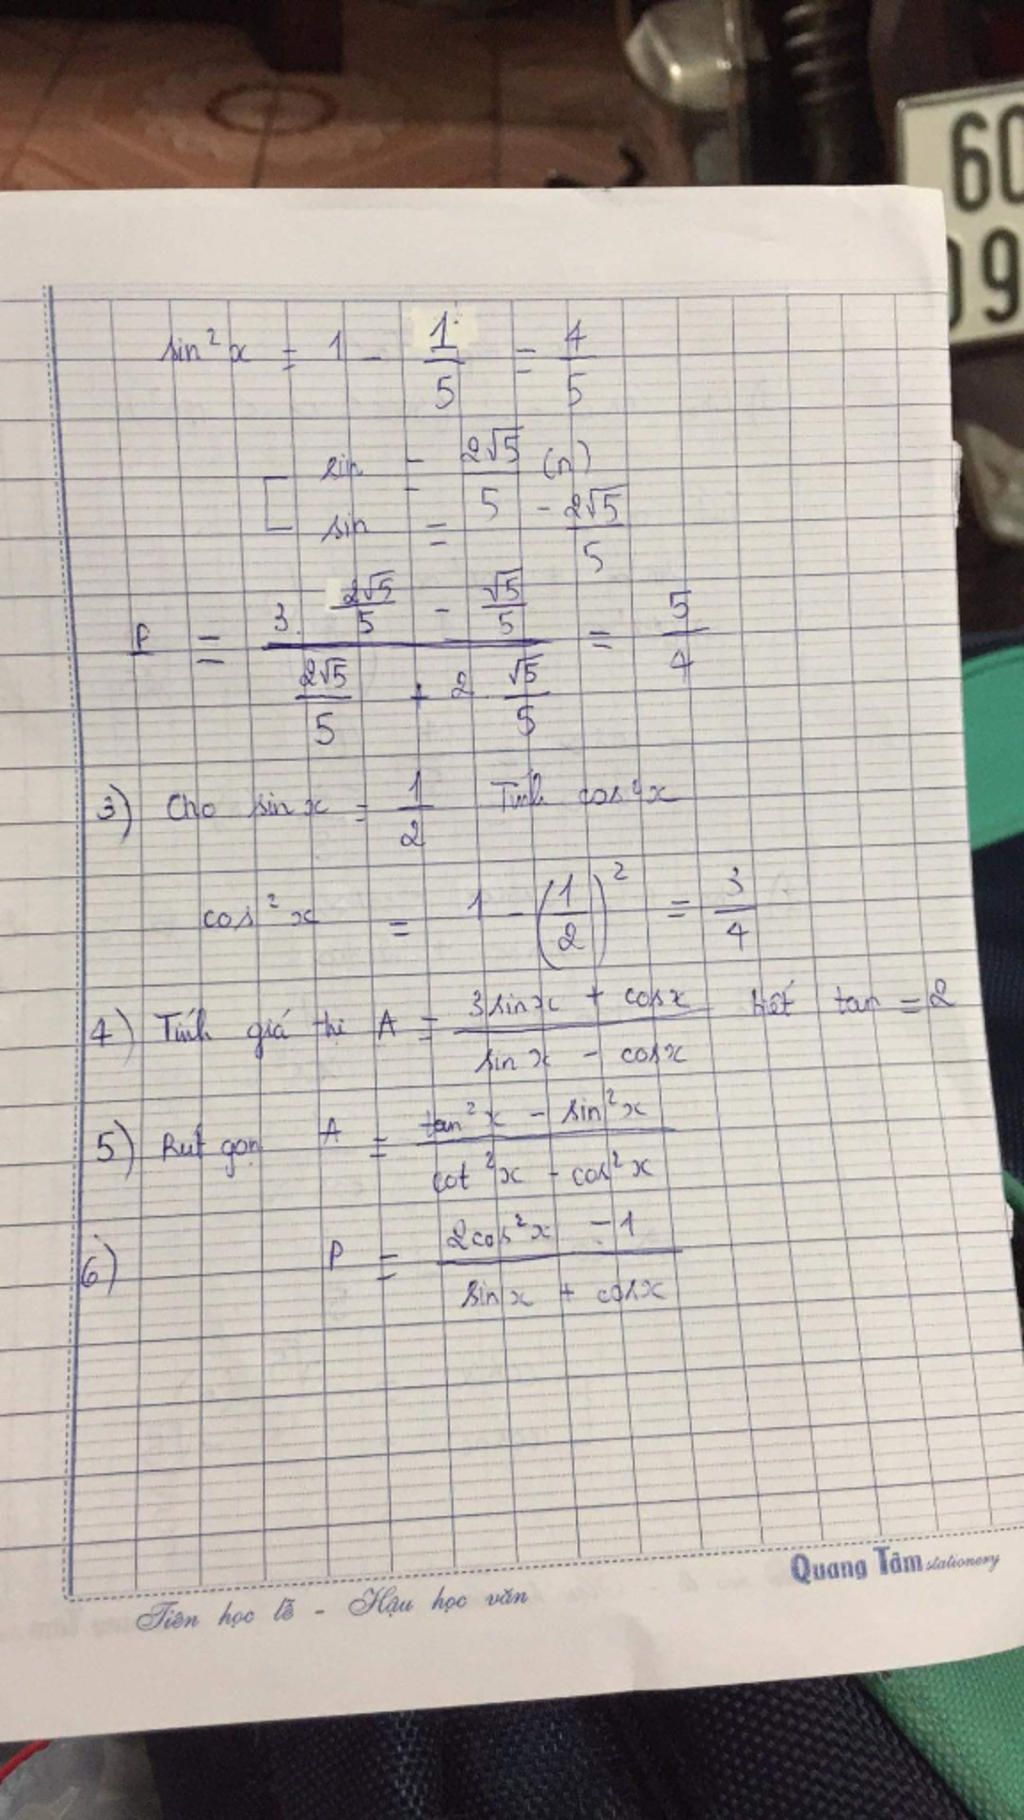 60
09
sin²x = 1 - 1/5 = 4/5
sin = 2√5/5 (n)
sin = -2√5/5
P = (3. 2√5/5 - √5/5)/(2√5/5 + 2. √5/5) = 5/4
3) Cho sin x = 1/2 Tính cos²x
cos²x = 1 - (1/2)² = 3/4
4) Tính giá thị A = (3sinx + cosx)/(sinx - cosx) biết tan = 2
5) Rút gọn A = (tan²x - sin²x)/(cot²x - cos²x)
6) P = (2cos²x - 1)/(sinx + cosx)
Quang Tâm stationery
Tiên học lễ - Hậu học văn